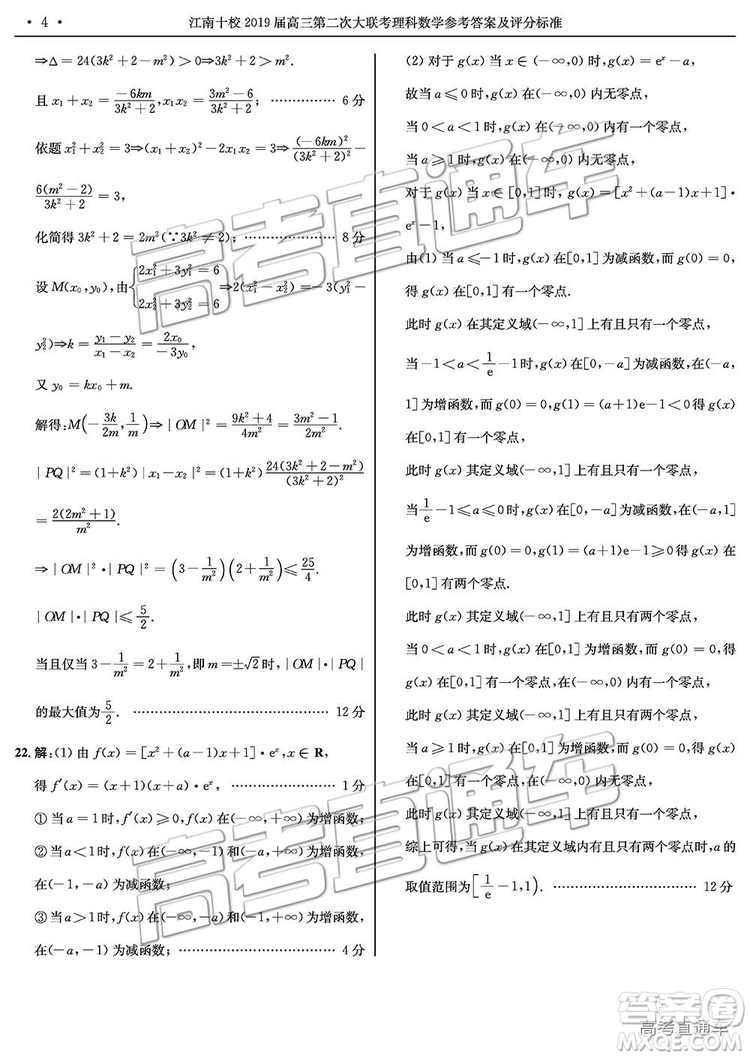 • 4 •
江南十校 2019 届高三第二次大联考理科数学参考答案及评分标准
⇒Δ=24(3k²+2-m²)>0⇒3k²+2>m².
且 x₁+x₂=\frac{-6km}{3k²+2},x₁x₂=\frac{3m²-6}{3k²+2}; …………… 6 分
依题 x₁²+x₂²=3⇒(x₁+x₂)²-2x₁x₂=3⇒\frac{(-6km)²}{(3k²+2)²}-
\frac{6(m²-2)}{3k²+2}=3,
化简得 3k²+2=2m²(∵3k²≠2); …………… 8 分
设 M(x₀,y₀),由{2x₁²+3y₁²=6
2x₂²+3y₂²=6 ⇒2(x₁²-x₂²)=-3(y₁²-
y₂²)⇒k=\frac{y₁-y₂}{x₁-x₂}=\frac{2x₀}{-3y₀},
又 y₀=kx₀+m.
解得:M(-\frac{3k}{2m},\frac{1}{m})⇒|OM|²=\frac{9k²+4}{4m²}=\frac{3m²-1}{2m²}.
|PQ|²=(1+k²)|x₁-x₂|²=(1+k²)\frac{24(3k²+2-m²)}{(3k²+2)²}
=\frac{2(2m²+1)}{m²}.
⇒|OM|²·|PQ|²=(3-\frac{1}{m²})(2+\frac{1}{m²})≤\frac{25}{4}.
|OM|·|PQ|≤\frac{5}{2}.
当且仅当 3-\frac{1}{m²}=2+\frac{1}{m²},即 m=±√2时,|OM|·|PQ|
的最大值为\frac{5}{2}. …………………………… 12 分
22. 解:(1) 由 f(x)=[x²+(a-1)x+1]·eˣ,x∈R,
得 f′(x)=(x+1)(x+a)·eˣ, …………………… 1 分
① 当 a=1 时,f′(x)≥0,f(x)在(-∞,+∞)为增函数;
② 当 a<1 时,f(x)在(-∞,-1)和(-a,+∞)为增函数,
在(-1,-a)为减函数;
③ 当 a>1 时,f(x)在(-∞,-a)和(-1,+∞)为增函数,
在(-a,-1)为减函数; …………………… 4 分
(2) 对于 g(x) 当 x∈(-∞,0) 时,g(x)=eˣ-a,
故当 a≤0 时,g(x)在(-∞,0) 内无零点,
当 0<a<1 时,g(x)在(-∞,0)内有一个零点,
当 a≥1 时,g(x)在(-∞,0)内无零点,
对于 g(x) 当 x∈[0,1]时,g(x)=[x²+(a-1)x+1]·
eˣ-1,
由(1) 当 a≤-1 时,g(x)在[0,1]为减函数,而 g(0)=0,
g(x)在[0,1]有一个零点.
此时 g(x)在其定义域(-∞,1]上有且只有一个零点,
当-1<a<\frac{1}{e}-1 时,g(x)在[0,-a]为减函数,在[-a,
1]为增函数,而 g(0)=0,g(1)=(a+1)e-1<0 得 g(x)
在[0,1]有一个零点,
此时 g(x)其定义域(-∞,1]上有且只有一个零点,
当\frac{1}{e}-1≤a≤0 时,g(x)在[0,-a]为减函数,在[-a,1]
为增函数,而 g(0)=0,g(1)=(a+1)e-1≥0 得 g(x)在
[0,1]有两个零点.
此时 g(x)其定义域(-∞,1]上有且只有两个零点,
当 0<a<1 时,g(x)在[0,1]为增函数,而 g(0)=0,
g(x)在[0,1]有一个零点,
此时 g(x)其定义域(-∞,1]上有且只有两个零点,
当 a≥1 时,g(x)在(-∞,0) 内无零点,
g(x)在[0,1]为增函数,而 g(0)=0,g(x)在[0,1]有一个
零点,
此时 g(x)在其定义域(-∞,1]上有且只有一个零点,
综上可得,当 g(x)在其定义域内有且只有两个零点,a 的
取值范围为[\frac{1}{e}-1,1). ……………………… 12 分
高考直通车
高考直通车
高考直通车